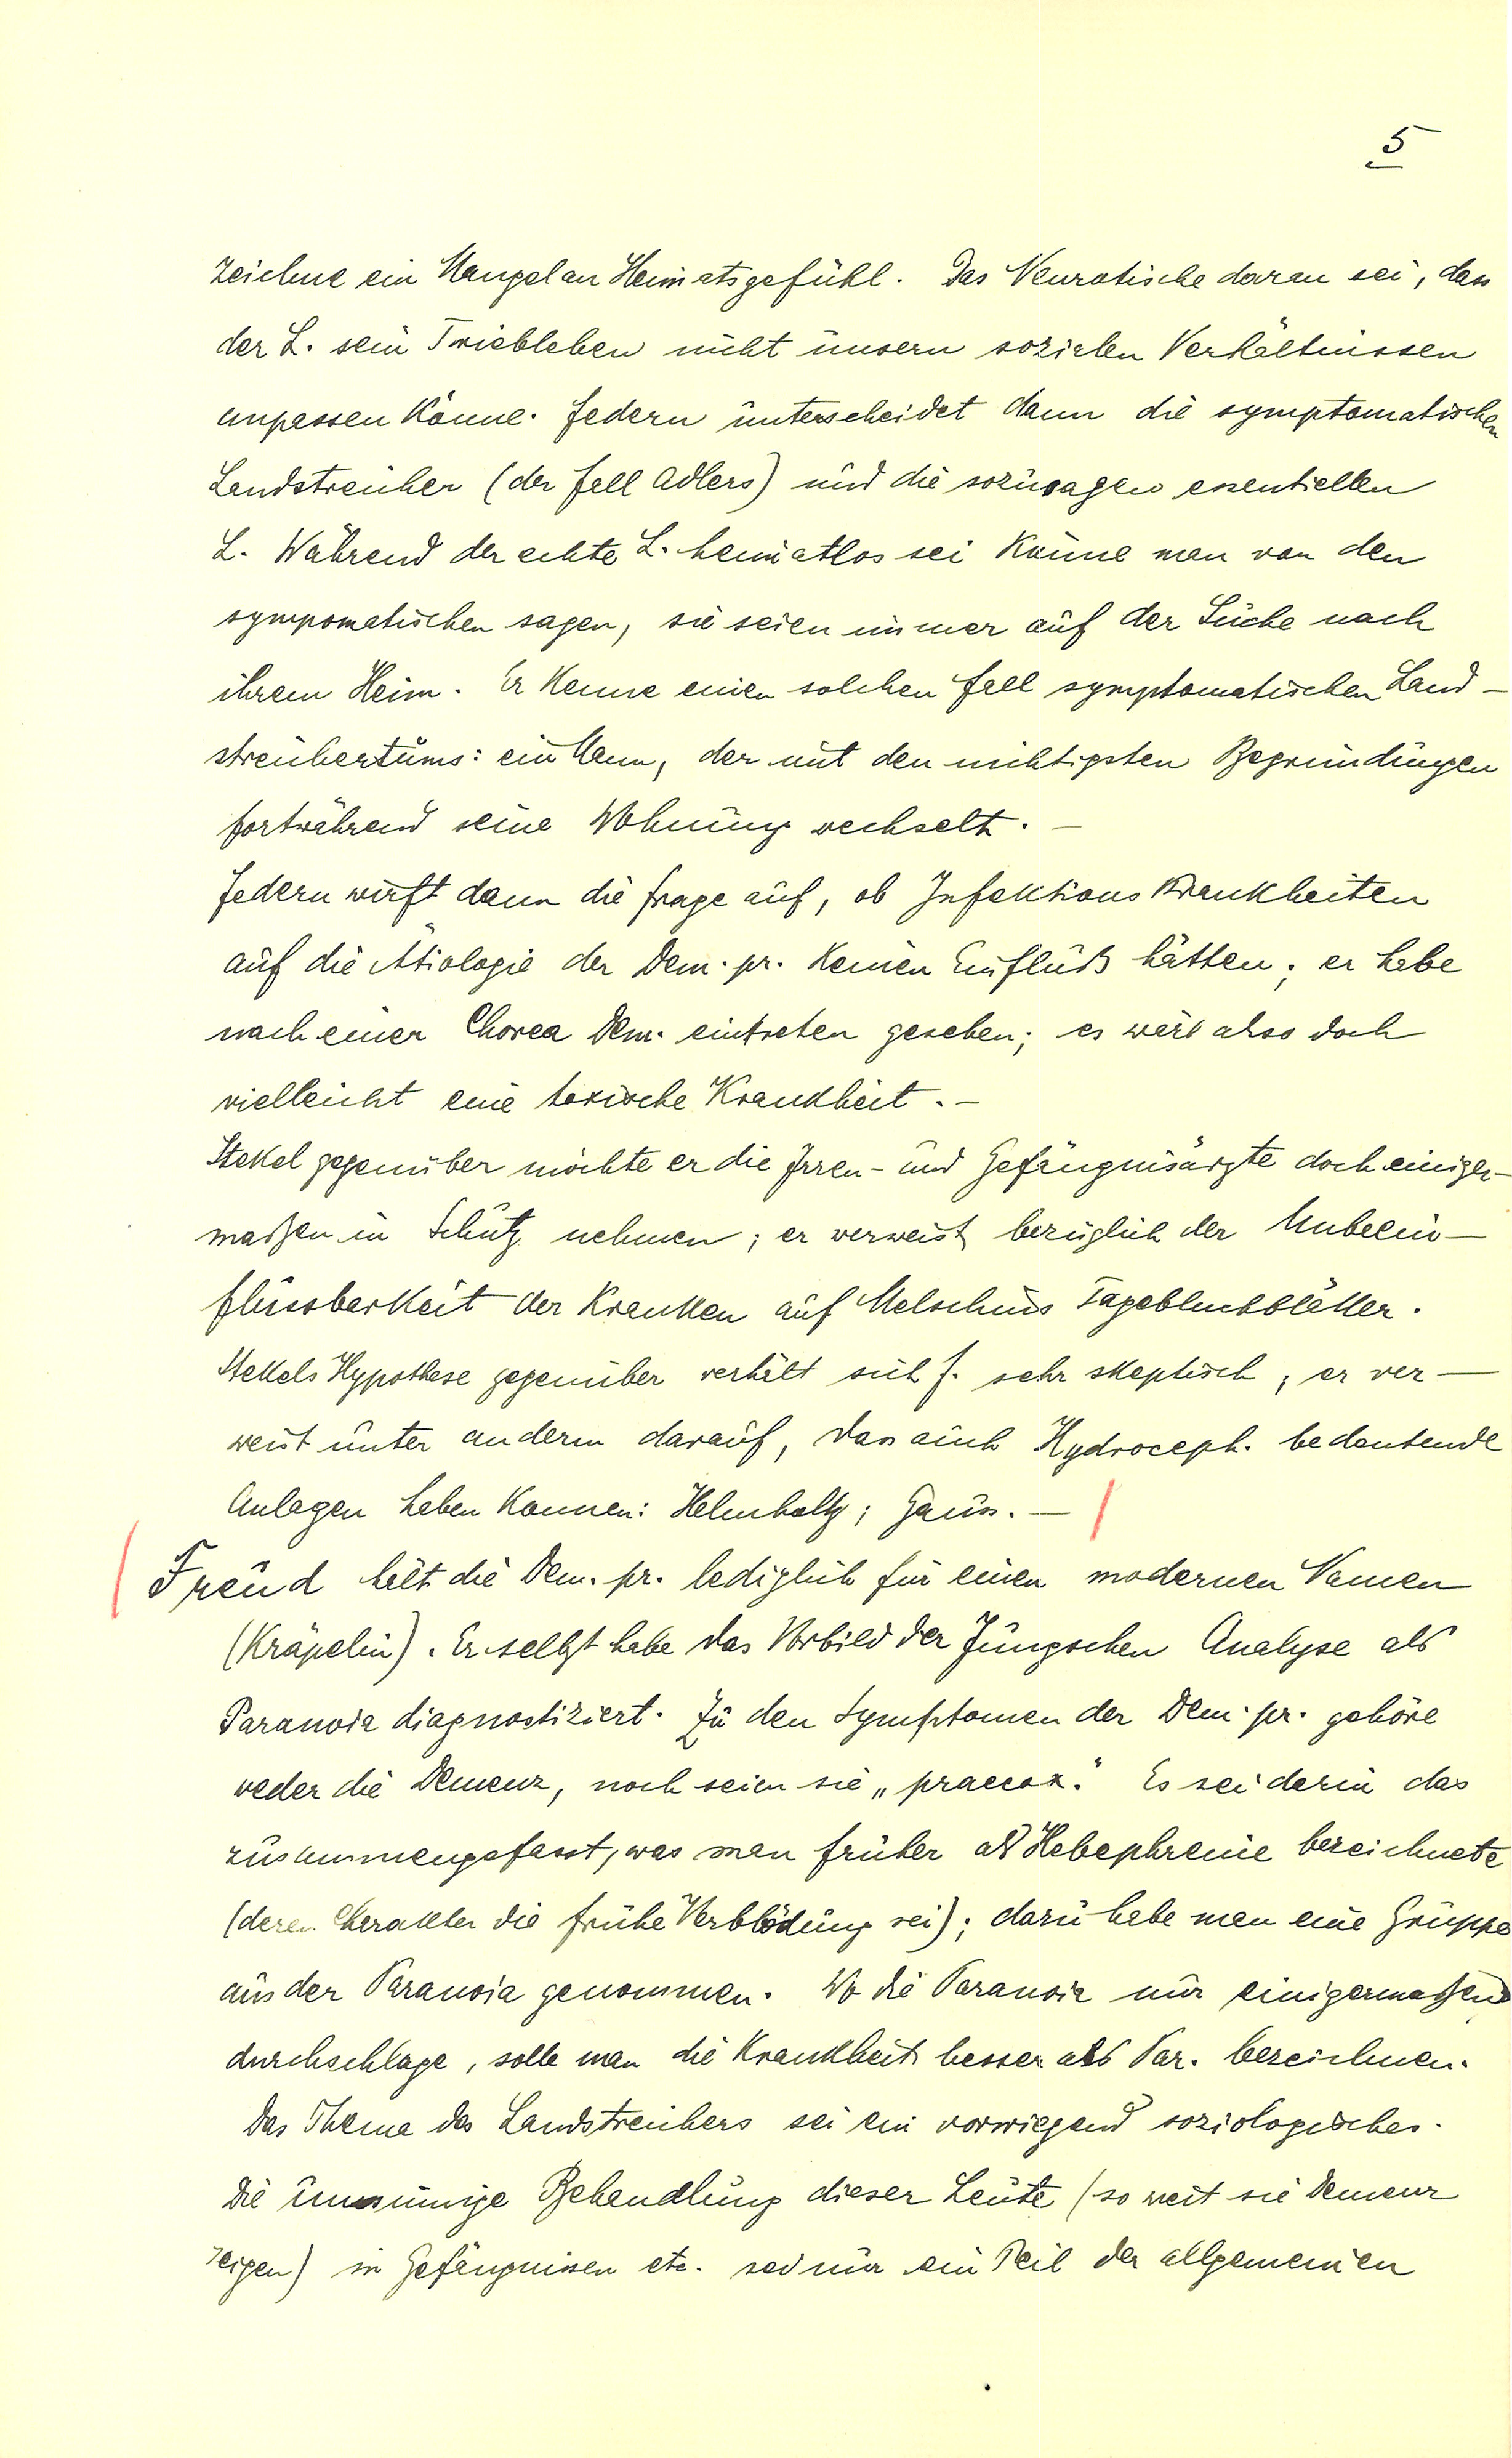 5
zeichne ein Mangel an Heimatsgefühl. Das Neurotische daran sei, dass
der L. sein Triebleben nicht unsern sozialen Verhältnissen
anpassen könne. Federn unterscheidet dann die symptomatischen
Landstreicher (der Fall Adlers) und die sozusagen essentiellen
L. Während der echte L. heimatlos sei könne man von den
sympomatischen sagen, sie seien immer auf der Suche nach
ihrem Heim. Er kenne einen solchen Fall symptomatischen Land-
streichertums: ein Mann, der mit den nichtigsten Begründungen
fortwährend seine Wohnung wechselt. —
Federn wirft dann die Frage auf, ob Infektionskrankheiten
auf die Ätiologie der Dem. pr. keinen Einfluß hätten; er habe
nach einer Chorea Dem. eintreten gesehen; es wäre also doch
vielleicht eine toxische Krankheit. —
Stekel gegenüber möchte er die Irren- und Gefängnisärzte doch einiger-
maßen in Schutz nehmen; er verweist bezüglich der Unbeein-
flussbarkeit der Kranken auf Melschins Tagebuchblätter.
Stekels Hypothese gegenüber verhält sich F. sehr skeptisch; er ver-
weist unter anderm darauf, dass auch Hydroceph. bedeutende
Anlagen haben können: Helmholtz; Gauss. —
Freud hält die Dem. pr. lediglich für einen modernen Namen
(Kräpelin). Er selbst habe das Vorbild der Jungschen Analyse als
Paranoia diagnostiziert. Zu den Symptomen der Dem. pr. gehöre
weder die Demenz, noch seien sie „praecox." Es sei darin das
zusammengefasst, was man früher als Hebephrenie bezeichnete
(deren Charakter die frühe Verblödung sei); dazu habe man eine Gruppe
aus der Paranoia genommen. Wo die Paranoia nur einigermaßen
durchschlage, solle man die Krankheit besser als Par. bezeichnen.
Das Thema des Landstreichers sei ein vorwiegend soziologisches.
Die unsinnige Behandlung dieser Leute (so weit sie Demenz
zeigen) in Gefängnissen etc. sei nur ein Teil der allgemeinen